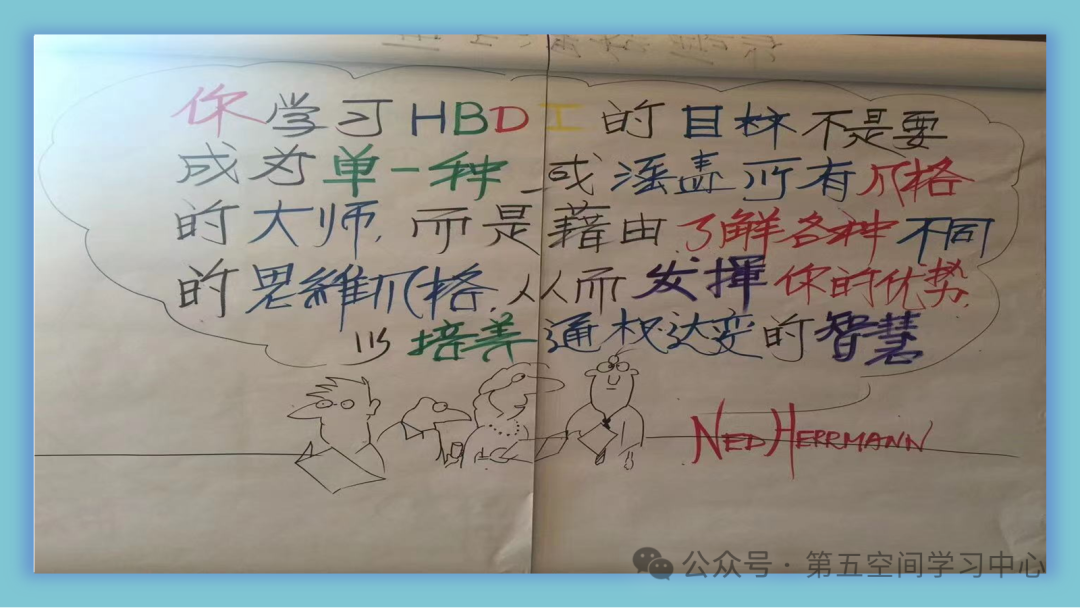 你学习HBDI的目标不是要
成为单一种 或涵盖所有风格
的大师,而是藉由了解各种不同
的思維风格,从而发揮你的优势,
以培养通权达变的智慧
NED HERRMANN
公众号·第五空间学习中心